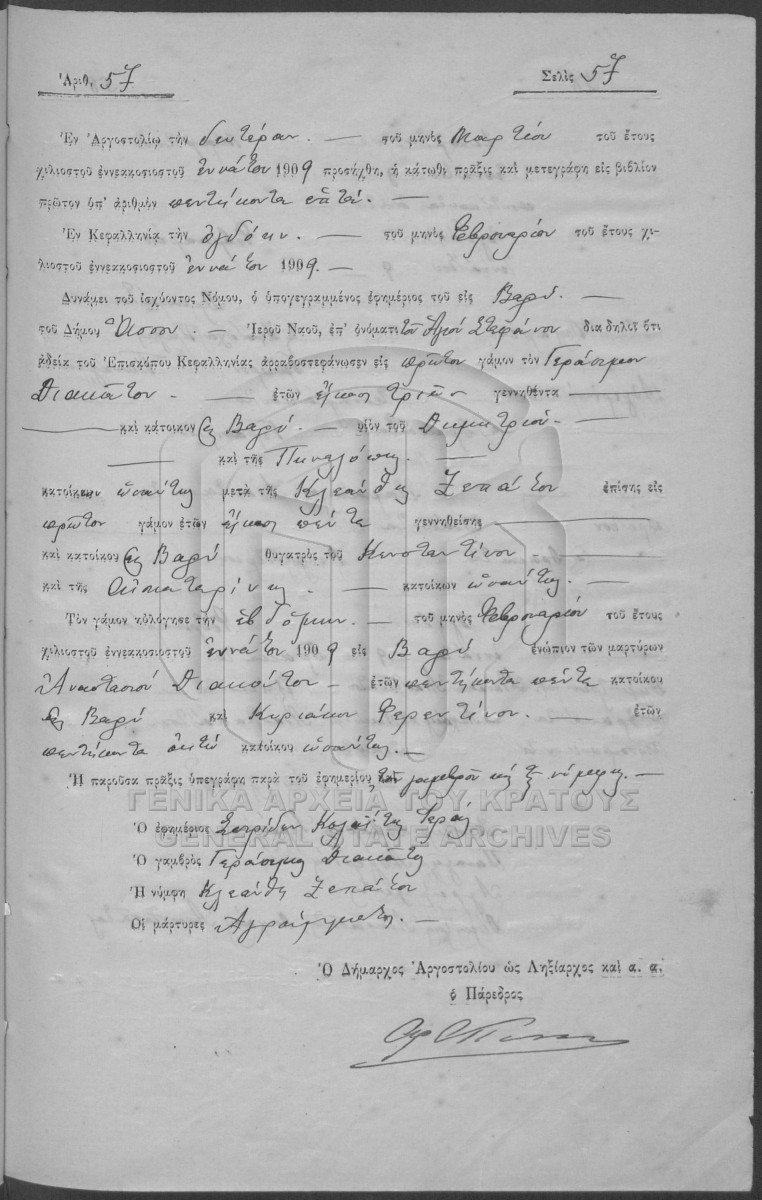 Ἀριθ. 57 Σελὶς 57
Ἐν Ἀργοστολίῳ τὴν δευτέραν. — τοῦ μηνὸς Μαρτίου τοῦ ἔτους
χιλιοστοῦ ἐννεακοσιοστοῦ ἐννάτου 1909 προσήχθη, ἡ κάτωθι πρᾶξις καὶ μετεγράφη εἰς βιβλίον
πρῶτον ὑπ' ἀριθμὸν πεντήκοντα ἑπτά. —
Ἐν Κεφαλληνίᾳ τὴν ὀγδόην. — τοῦ μηνὸς Φεβρουαρίου τοῦ ἔτους χι-
λιοστοῦ ἐννεακοσιοστοῦ ἐννάτου 1909. —
Δυνάμει τοῦ ἰσχύοντος Νόμου, ὁ ὑπογεγραμμένος ἐφημέριος τοῦ εἰς Βαρύ. —
τοῦ Δήμου Ἄσσου. — Ἱεροῦ Ναοῦ, ἐπ' ὀνόματι τοῦ Ἁγίου Στεφάνου διαδηλοῖ ὅτι
ἀδείᾳ τοῦ Ἐπισκόπου Κεφαλληνίας ἀρραβοστεφάνωσεν εἰς πρῶτον γάμον τὸν Γεράσιμον
Διακᾶτον — ἐτῶν εἴκοσι τριῶν γεννηθέντα —
— καὶ κάτοικον εἰς Βαρύ. — υἱὸν τοῦ Δημητρίου —
— καὶ τῆς Πηνελόπης. —
κατοίκων ὡσαύτως μετὰ τῆς Κλεάνθης Ζεπάτου ἐπίσης εἰς
πρῶτον γάμον ἐτῶν εἴκοσι πέντε γεννηθείσης —
καὶ κατοίκου εἰς Βαρύ θυγατρὸς τοῦ Κωνσταντίνου —
καὶ τῆς Αἰκατερίνης. — κατοίκων ὡσαύτως. —
Τὸν γάμον ηὐλόγησε τὴν ἑβδόμην. — τοῦ μηνὸς Φεβρουαρίου τοῦ ἔτους
χιλιοστοῦ ἐννεακοσιοστοῦ ἐννάτου 1909 εἰς Βαρύ ἐνώπιον τῶν μαρτύρων
Ἀναστασίου Διακάτου — ἐτῶν πεντήκοντα πέντε κατοίκου
εἰς Βαρύ καὶ Κυριάκου Φερεντίνου. — ἐτῶν
πεντήκοντα ὀκτώ κατοίκου ὡσαύτως. —
Ἡ παροῦσα πρᾶξις ὑπεγράφη παρὰ τοῦ ἐφημερίου, τοῦ γαμβροῦ καὶ τῆς νύμφης. —
ΓΕΝΙΚΑ ΑΡΧΕΙΑ ΤΟΥ ΚΡΑΤΟΥΣ
Ὁ ἐφημέριος Σπυρίδων Καλαφάτης Ἱερεύς
GENERAL STATE ARCHIVES
Ὁ γαμβρὸς Γεράσιμος Διακάτος
Ἡ νύμφη Κλεάνθη Ζεπάτου
Οἱ μάρτυρες Ἀγράμματοι. —
Ὁ Δήμαρχος Ἀργοστολίου ὡς Ληξίαρχος καὶ α. α.
ὁ Πάρεδρος